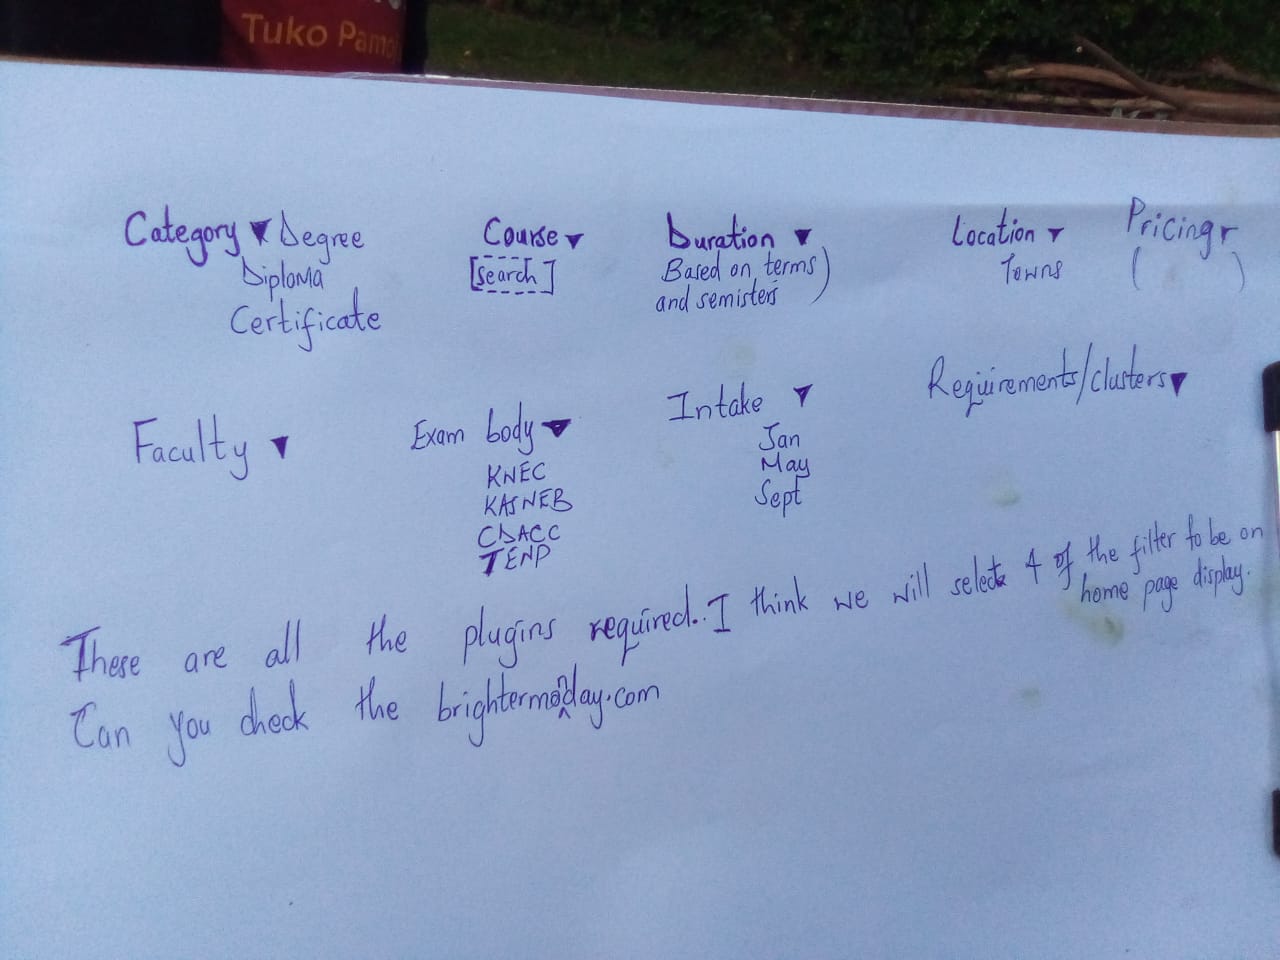 Tuko Pamo
Category ▼ Degree
Diploma
Certificate
Course ▼
[search]
Duration ▼
Based on terms)
and semisters
Location ▼
Towns
Pricing ▼
( )
Faculty ▼
Exam body ▼
KNEC
KASNEB
CDACC
TENP
Intake ▼
Jan
May
Sept
Requirements/clusters ▼
These are all the plugins required.. I think we will select 4 of the filter to be on
home page display.
Can you check the brightermonday.com